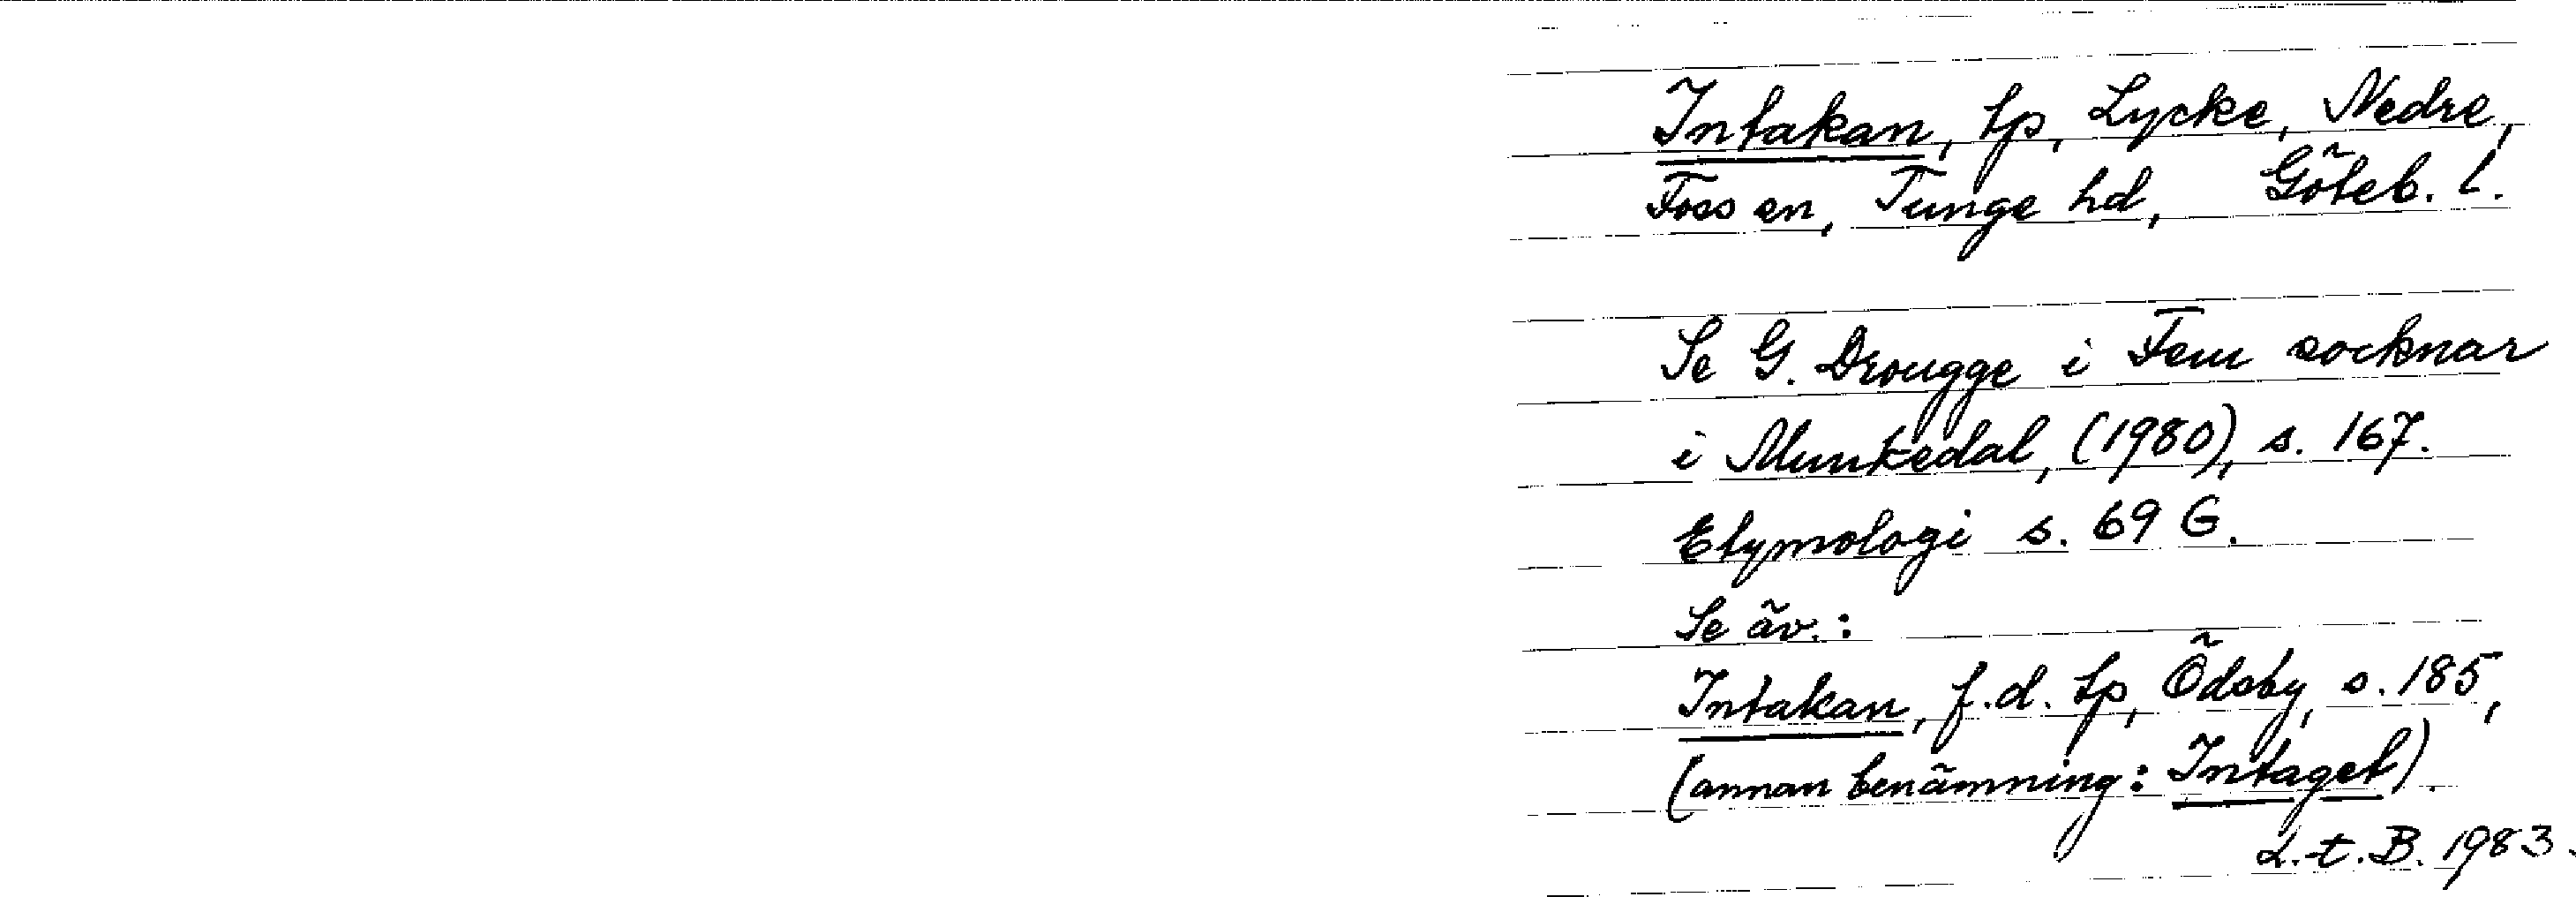 Intakan, tp, Lycke, Nedre,
Foss sn, Tunge hd, Göteb. l.
Se G. Drougge i Fem socknar
i Munkedal, (1980), s. 167.
Etymologi s. 69 G.
Se äv.:
Intakan, f.d. tp, Ödsby, s. 185,
(annan benämning: Intaget).
L.t.B. 1983.